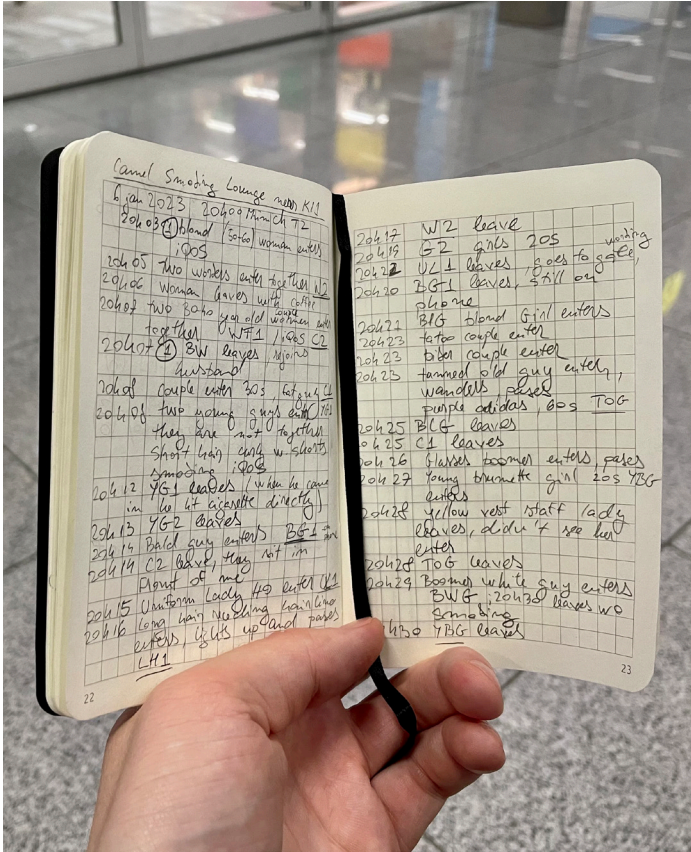 Camel Smoking Lounge near K11
6 jan 2023 20h00 Munich T2
20h03 1 blond (50-60) woman enters
iQOS
20h05 two workers enter together W2
20h06 woman leaves with coffee
20h07 two 30 40 year old women enter
together WT1 / iQOS C2
20h07 1 BW leaves, rejoins
husband
20h08 couple enter 30s, fat guy C1
20h08 two young guys enter YG2
they are not together
short hair curly w shorts
smoking iQOS
20h12 YG1 leaves (when he came
in he lit cigarette directly)
20h13 YG2 leaves
20h14 Bald guy enters BG1
20h14 C2 leave, they sit in
front of me
20h15 Uniform Lady 40 enter UL1
20h16 Long hair receding hair line
enters, lights up and pases
LH1
22
20h17 W2 leave
20h19 G2 girls 20s
20h22 UL1 leaves, goes to gate,
working
20h20 BG1 leaves, still on
phone
20h21 BIG blond Girl enters
20h23 tatoo couple enter
20h23 older couple enter
20h23 tanned old guy enters,
wanders pases
purple adidas, 60s TOG
20h25 BLG leaves
20h25 C1 leaves
20h26 Glasses boomer enters, pases
20h27 Young brunette girl 20s YBG
enters
20h28 yellow vest staff lady
leaves, didn't see her
enter
20h28 TOG leaves
20h29 Boomer white guy enters
BWG, 20h30 leaves wo
smoking
20h30 YBG leaves
23